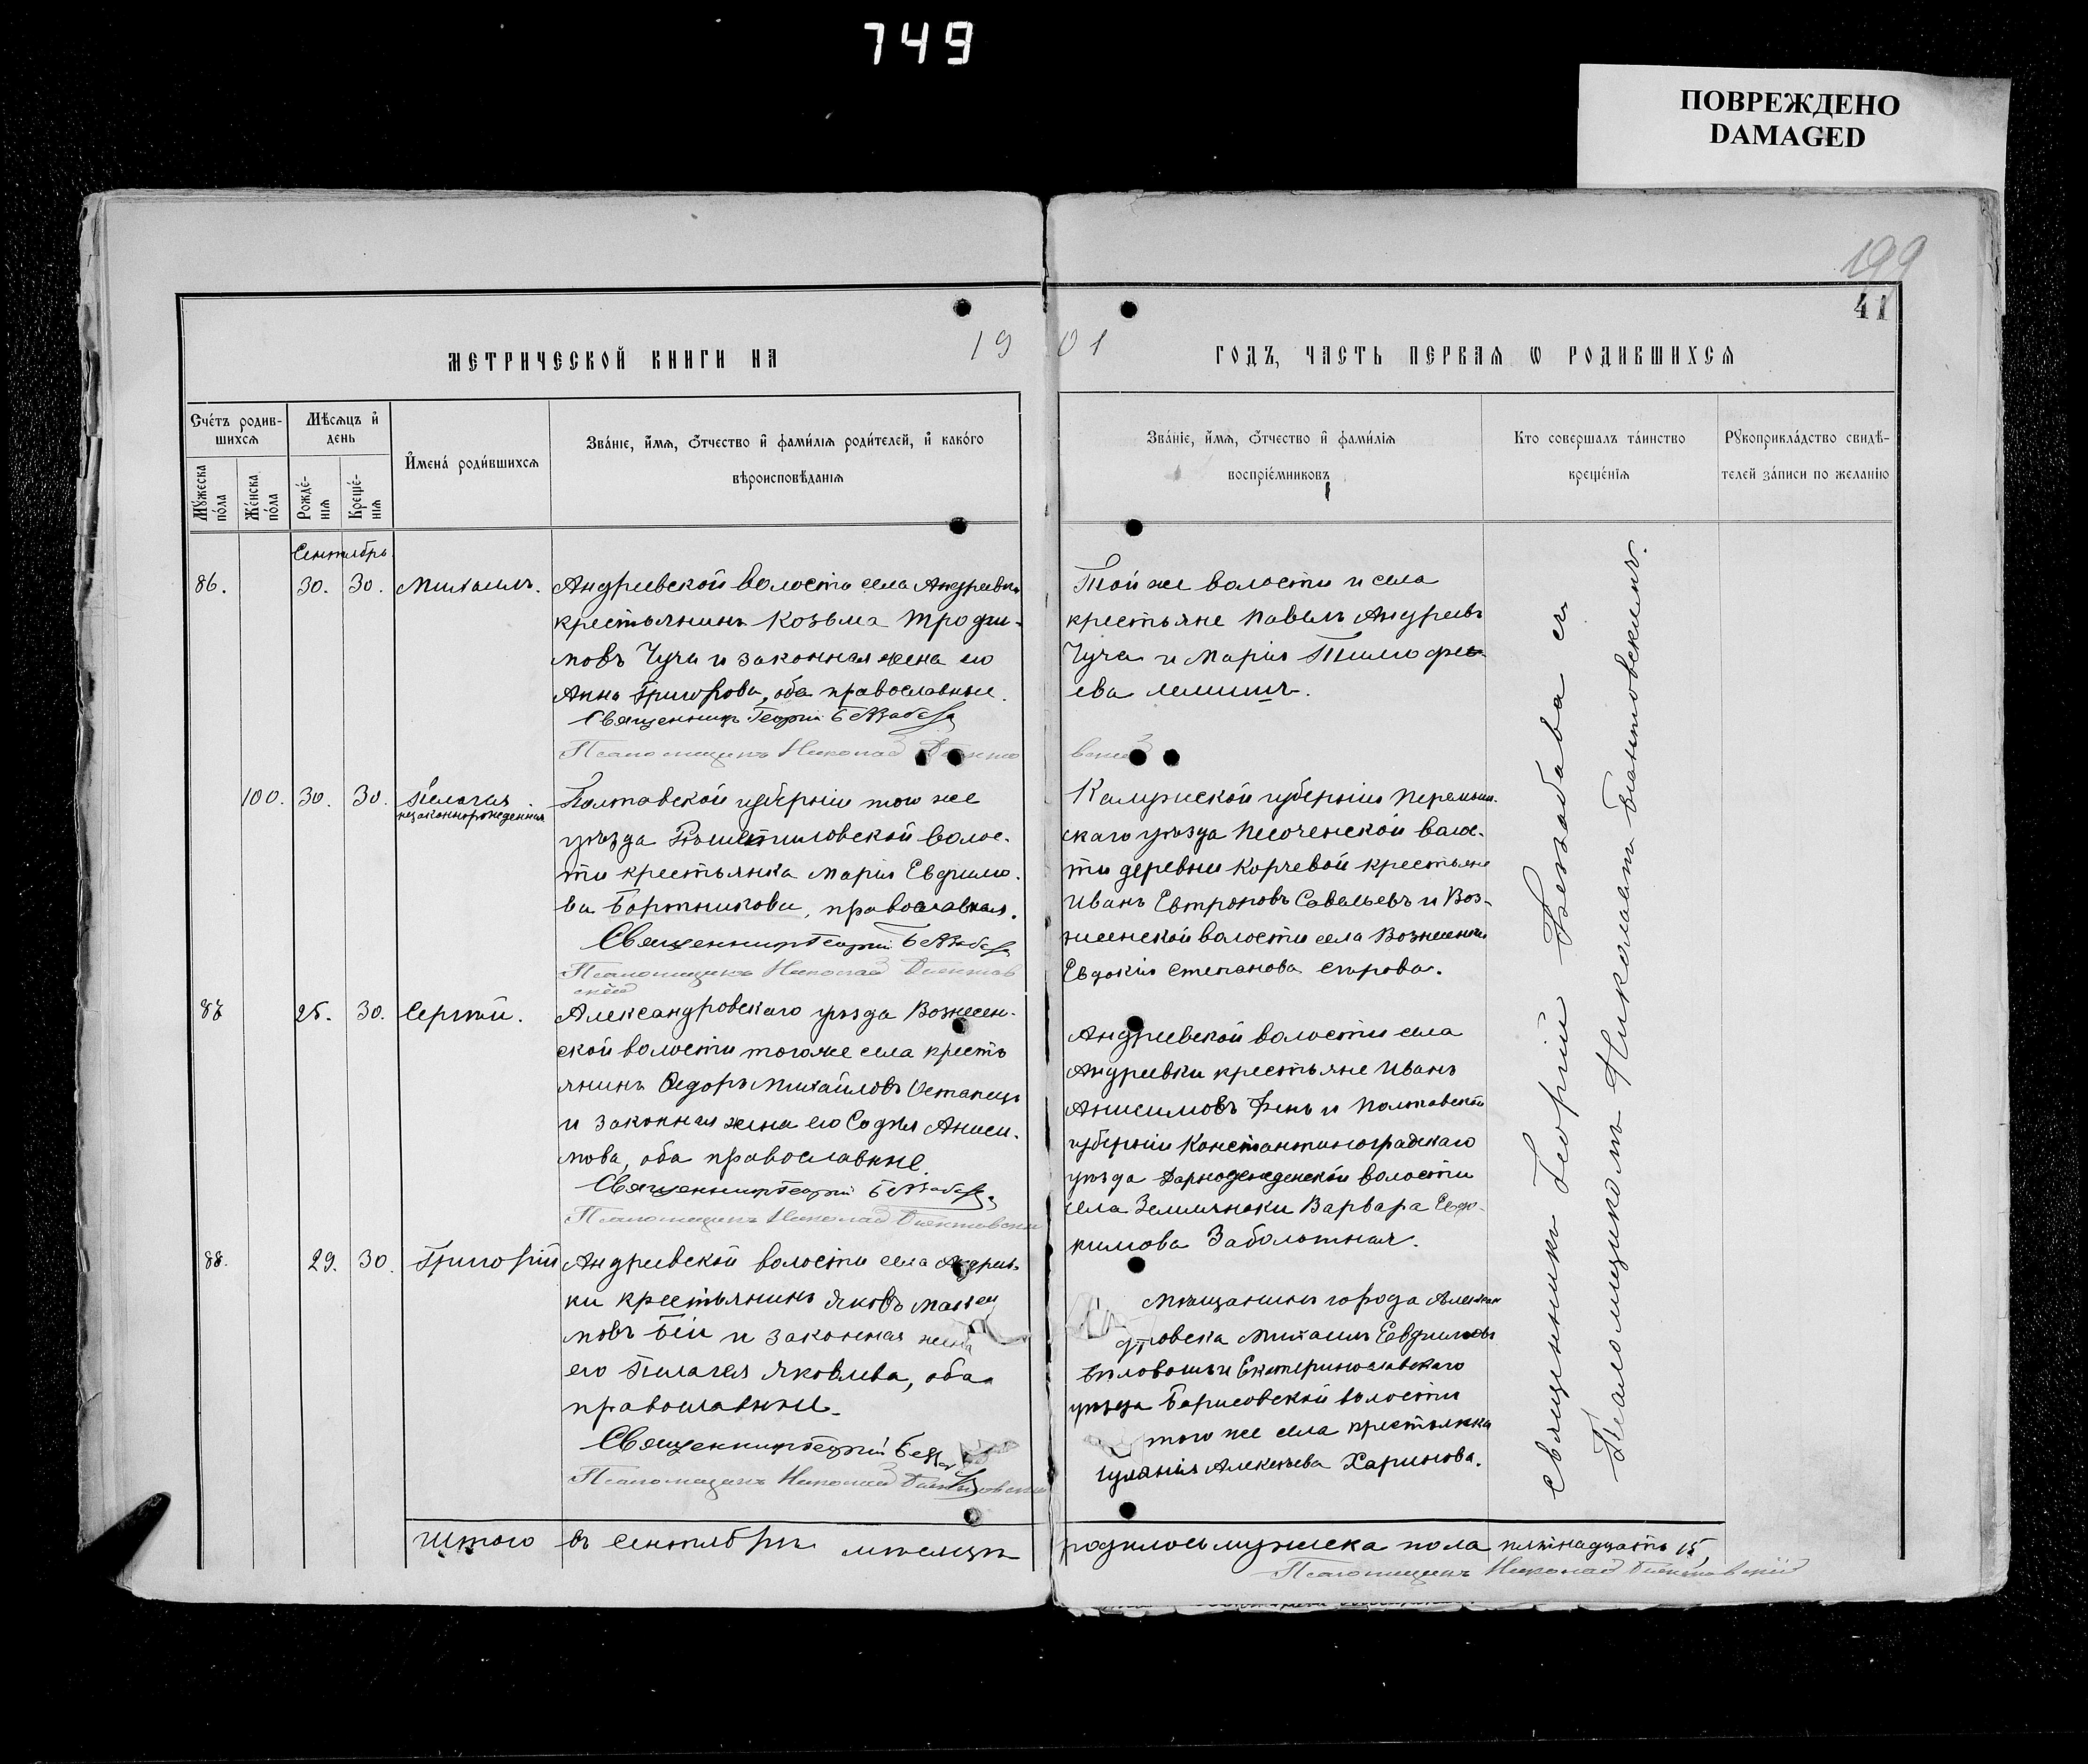 749
ПОВРЕЖДЕНО
DAMAGED
199
41
МЕТРИЧЕСКОЙ КНИГИ НА 1901 ГОДЪ, ЧАСТЬ ПЕРВАЯ Ѡ РОДИВШИХСЯ
Сче́тъ родив-
шихся
Мѣсяцъ и
день
Муже́ска
по́ла
Же́нска
по́ла
Рожде́-
нія
Креще́-
нія
Имена́ роди́вшихся
Зва́ніе, и́мя, ѻ́тчество и фами́лія роди́телей, и како́го
вѣроисповѣ́данія
Зва́ніе, и́мя, ѻ́тчество и фами́лія
воспріе́мниковъ
Кто соверша́лъ та́инство
креще́нія
Рукоприкла́дство свидѣ́-
телей за́писи по жела́нію
Сентябрь.
86. 30. 30. Михаилъ.
Андреевской волости села Андреевки
крестьянинъ Козьма Трофи-
мовъ Чуча и законная жена его
Анна Григорова, оба православные.
Священникъ Георгій Беззабава
Псаломщикъ Николай
Той же волости и села
крестьяне Павелъ Андреевъ
Чуча и Марія Тимофе-
ева
100. 30. 30. Пелагея.
незаконнорожденная
Полтавской губерніи того же
уѣзда волос-
ти крестьянка Марія Евфимо-
ва Бортникова, православная.
Священникъ Георгій Беззабава
Псаломщикъ Николай
Калужской губерніи Перемыш-
скаго уѣзда Песоченской волос-
ти деревни Корчевой крестьяне
Иванъ Евтроповъ Савельевъ и Воз-
несенской волости села Вознесенки
Евдокія Степанова Егорова.
87 25. 30. Сергѣй.
Александровскаго уѣзда Вознесен-
ской волости того же села кресть
янинъ Ѳедоръ Михайловъ Остапецъ
и законная жена его Софія Аниси-
мова, оба православные.
Священникъ Георгій Беззабава
Псаломщикъ Николай
Андреевской волости села
Андреевки крестьяне Иванъ
Анисимовъ Фень и Полтавской
губерніи Константиноградскаго
уѣзда волости
села Землянки Варвара Евдо-
кимова Заболотная.
88. 29. 30. Григорій
Андреевской волости села Андреев-
ки крестьянинъ Яковъ Макси
мовъ Бій и законная жена
его Пелагея Яковлева, оба
православные.
Священникъ Георгій
Псаломщикъ Николай
Мѣщанинъ города Алексан
дровска Михаилъ Евфимовъ
и Екатеринославскаго
уѣзда Борисовской волости
того же села крестьянка
Іуліанія Алексѣева Харинова.
Священникъ Георгій Беззабава съ
Псаломщикомъ Николаемъ
Итого въ сентябрѣ мѣсяцѣ родилось мужеска пола пятнадцать 15,
Псаломщикъ Николай